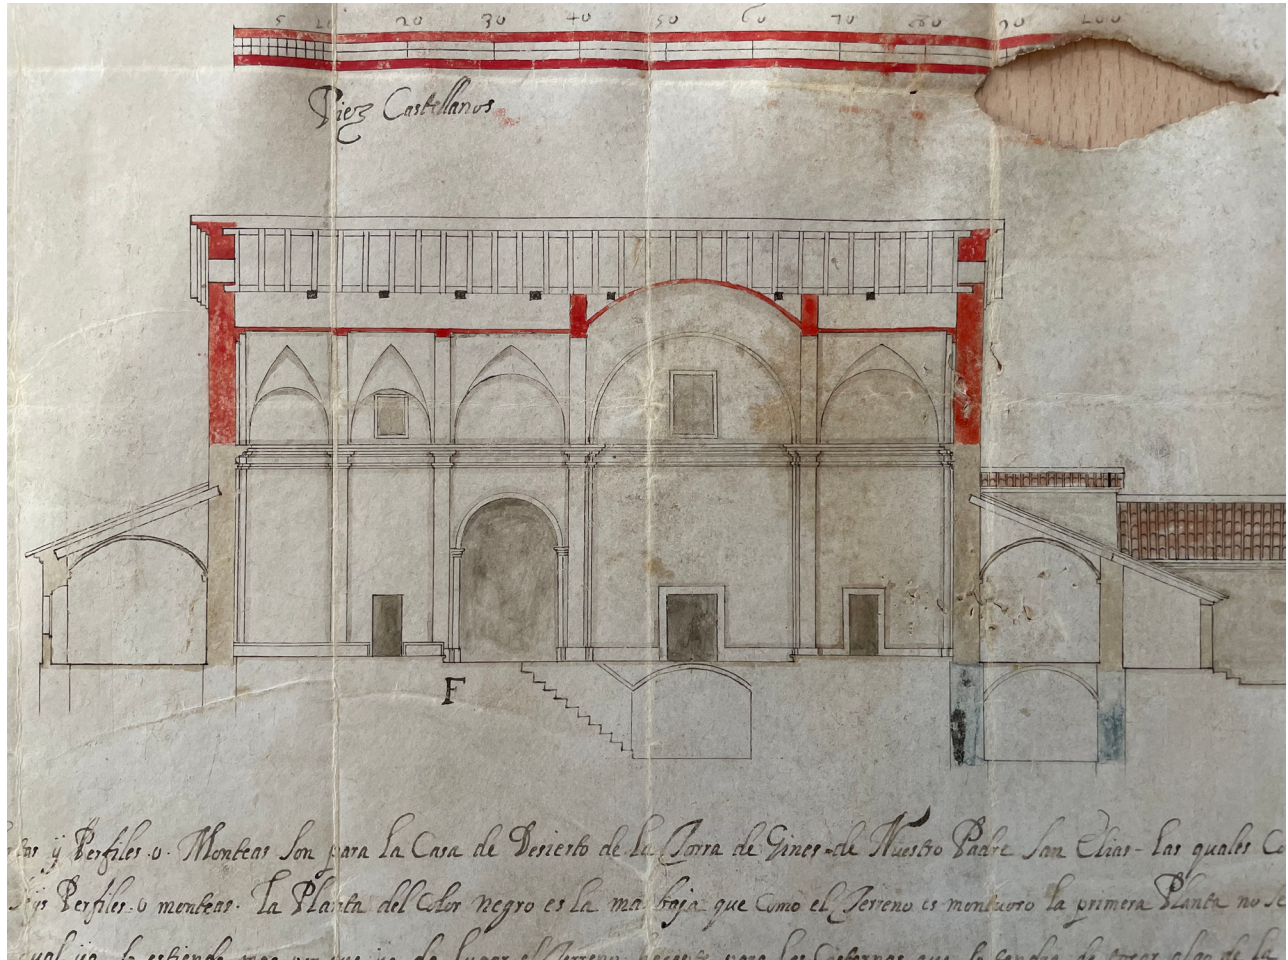 5 10 20 30 40 50 60 70 80 90 100
Piez Castellanos
F
y Perfiles o Monteas son para la Casa de Desierto de la Torra de Gines de Nuestro Padre San Elias - las quales
Perfiles o monteas. La Planta del Color negro es la mas baja que como el Terreno es montuoro la primera Planta no se
el Terreno para las Cisternas que algo de la